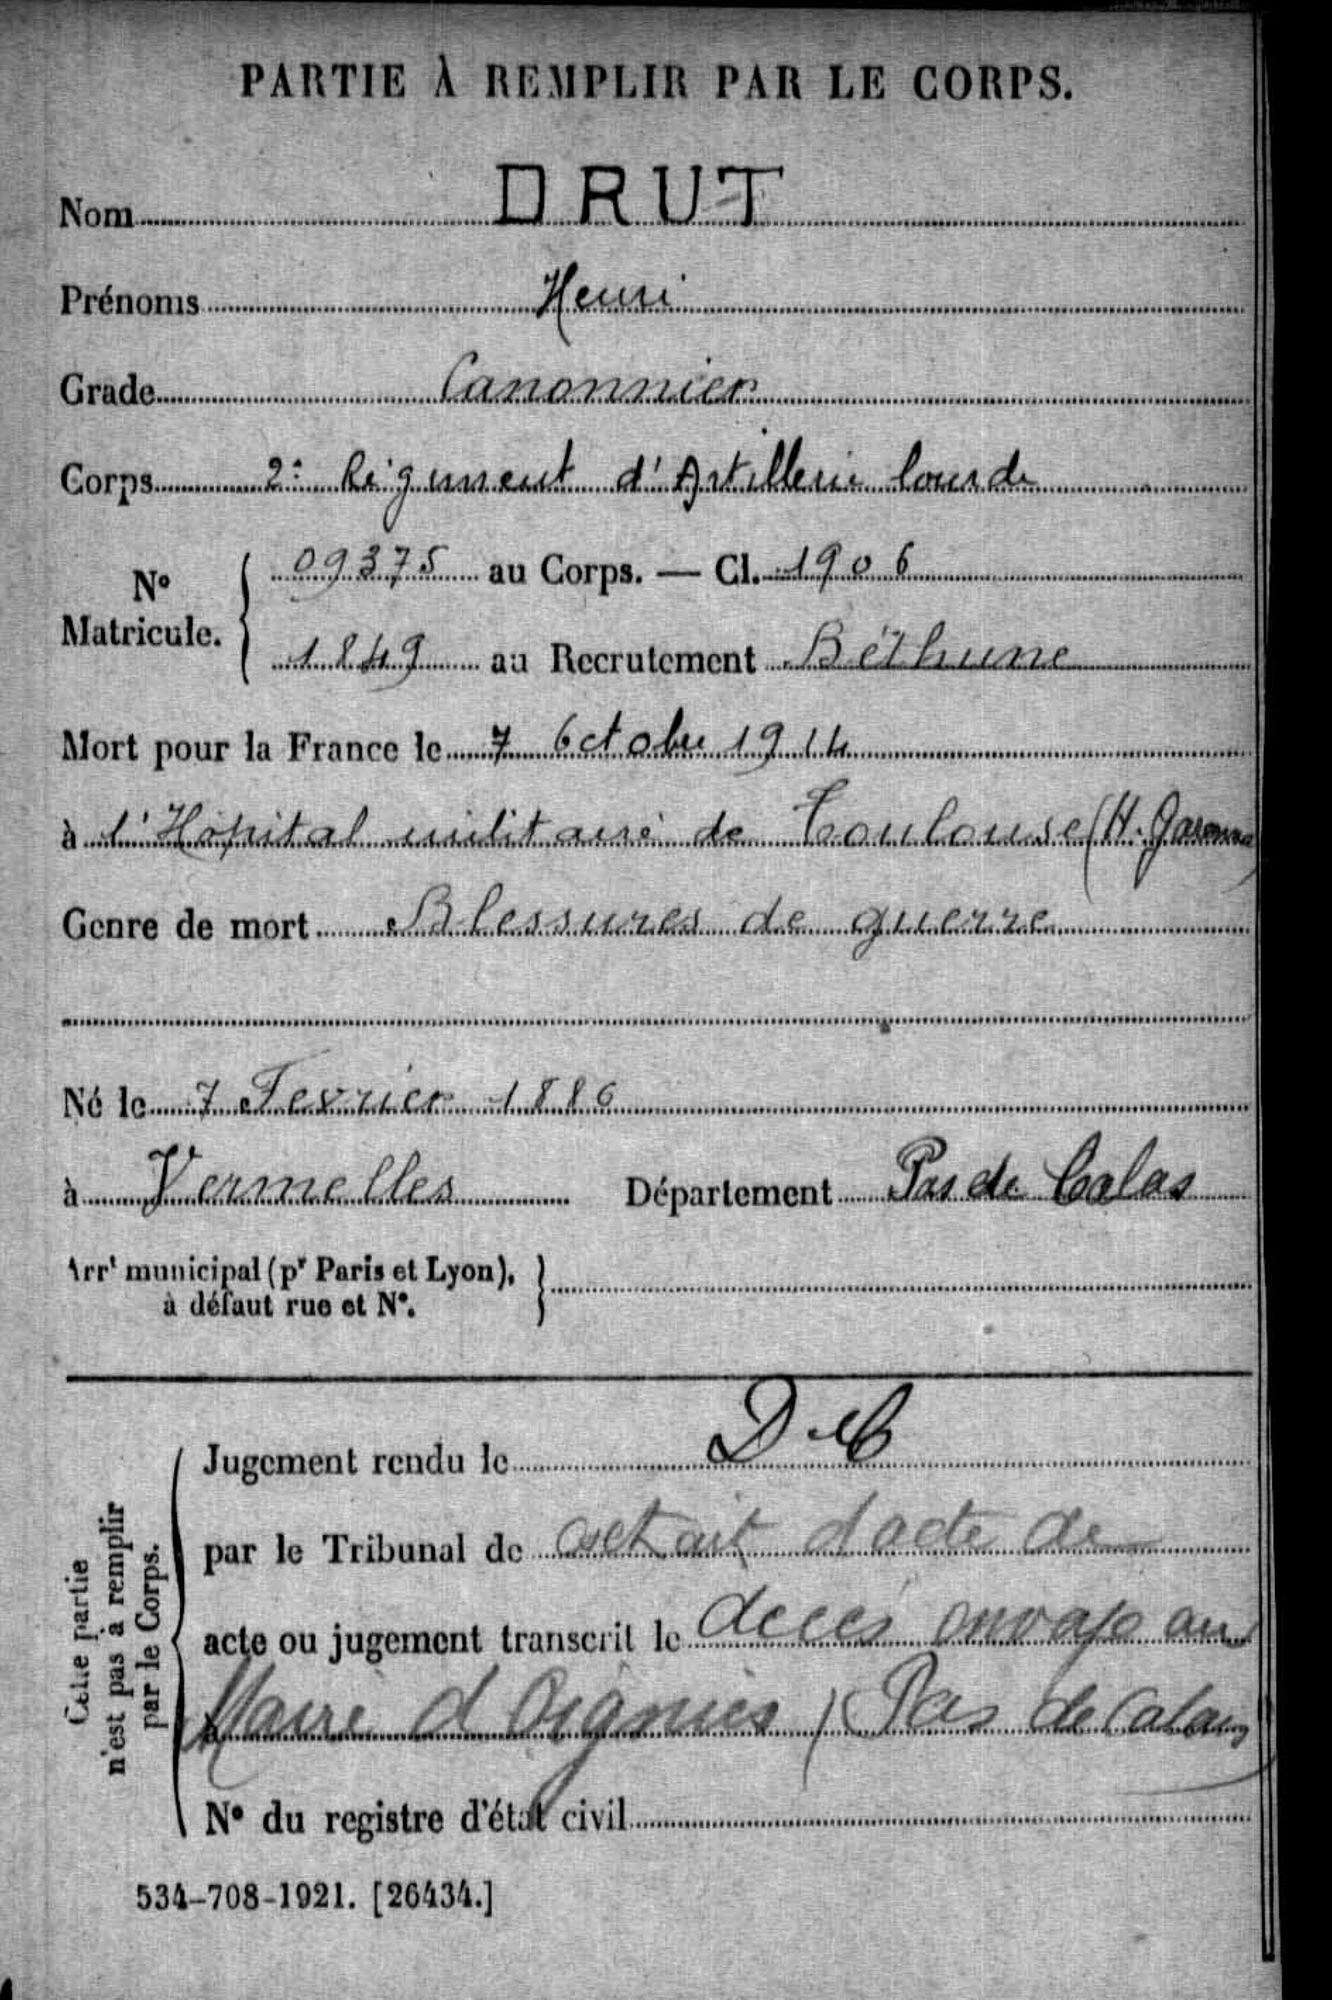 PARTIE À REMPLIR PAR LE CORPS.
Nom DRUT
Prénoms Henri
Grade Canonnier
Corps 2e Régiment d'Artillerie lourde
N° Matricule. 09375 au Corps. — Cl. 1906
1849 au Recrutement Béthune
Mort pour la France le 7 Octobre 1914
à l'Hôpital militaire de Toulouse (H. Garonne)
Genre de mort Blessures de guerre
Né le 7 Fevrier 1886
à Vermelles Département Pas de Calas
Arrt municipal (pr Paris et Lyon),
à défaut rue et N°.
Cette partie
n'est pas à remplir
par le Corps.
Jugement rendu le
par le Tribunal de extrait d'acte de
acte ou jugement transcrit le décés envoyé au
Maire d Oignies (Pas de Calais)
N° du registre d'état civil
534-708-1921. [26434.]